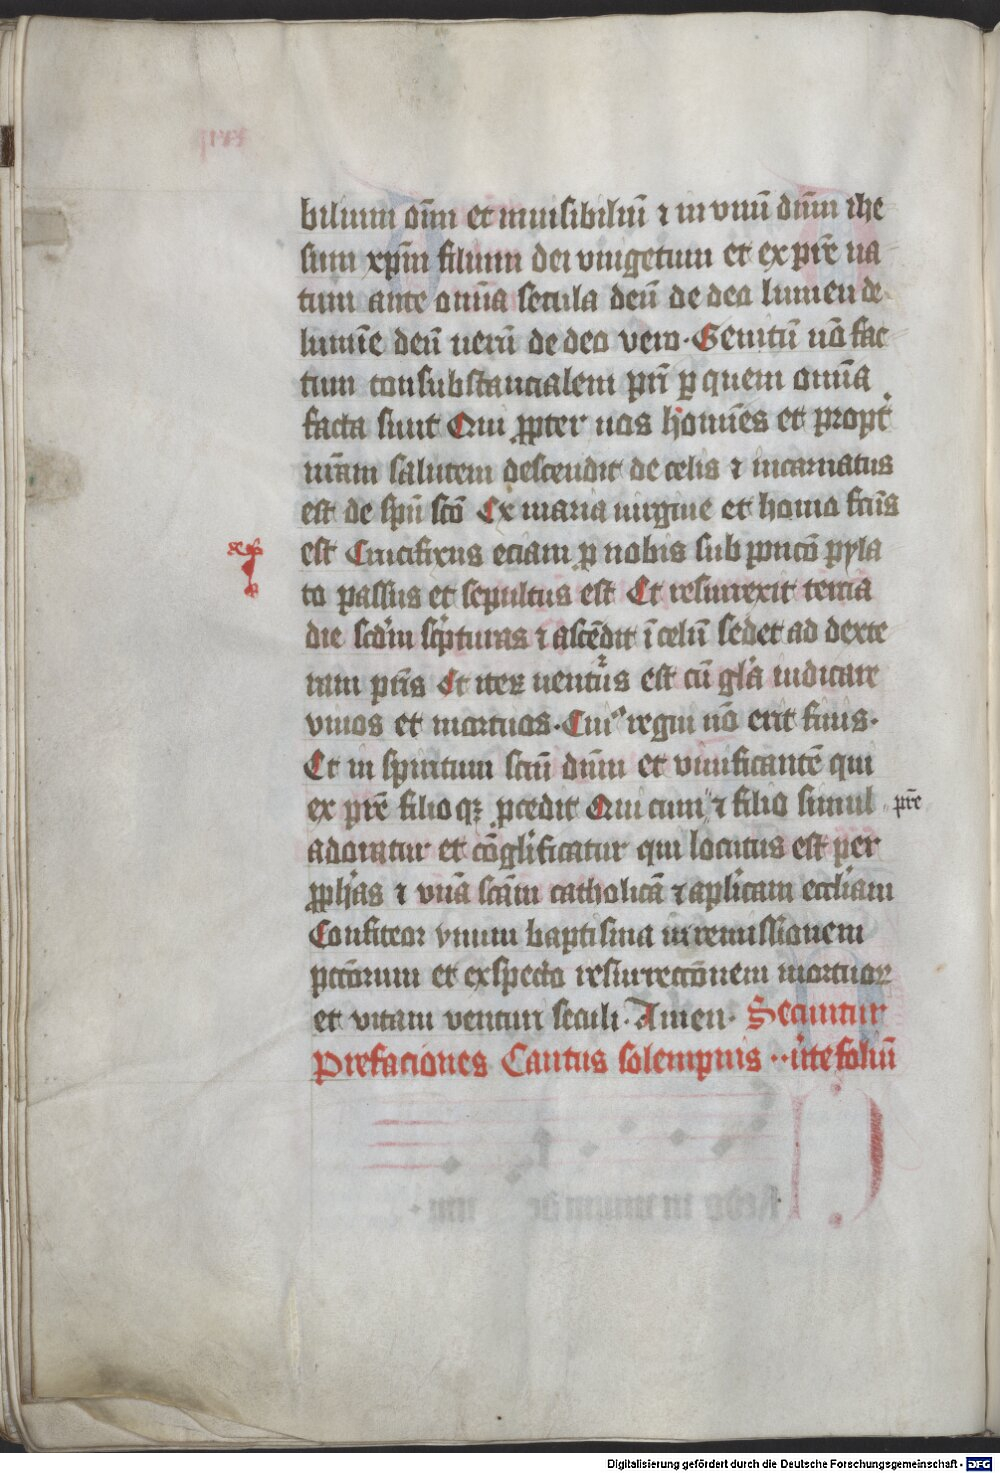 bilium oīm et inuisibiliū ⁊ in vnū dn̄m ihe
sum xp̄m filium dei vnigetum et ex pr̄e na
tum ante om̄ia secula deū de deo lumen de
lumīe deū uerū de deo vero. Genitū nō fac
tum consubstancialem pr̄i ꝑ quem om̄ia
facta sunt Qui ꝓpter nos homīes et propt̄
nr̄am salutem descendit de celis ⁊ incarnatus
est de spū scō Ex maria uirgine et homo fc̄us
est Crucifixus eciam ꝓ nobis sub poncō pyla
to passus et sepultus est Et resurrexit tercia
die scd̄m sc̄pturas ⁊ ascēdit ī celū sedet ad dexte
ram pr̄is Et iteꝝ uentur̄s est cū gl̄a iudicare
viuos et mortuos. Cuiꝰ regni nō erit finis.
Et in spiritum scm̄ dn̄m et viuificantē qui
ex pr̄e filioqꝫ ꝓcedit Qui cum ⁊ filio simul pr̄e
adoratur et cōgl̄ificatur qui locutus est per
ꝓphās ⁊ vnā scām catholicā ⁊ apl̄icam eccl̄iam
Confiteor vnum baptisma in remissionem
pctōrum et exspecto resurrectōnem mortuoꝝ
et vitam venturi seculi. Amen. Secuntur
Prefaciones Cantus solempnis
Digitalisierung gefördert durch die Deutsche Forschungsgemeinschaft - DFG